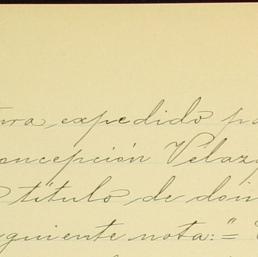 expedido
oncepción Velaz
título de
guiente nota:="